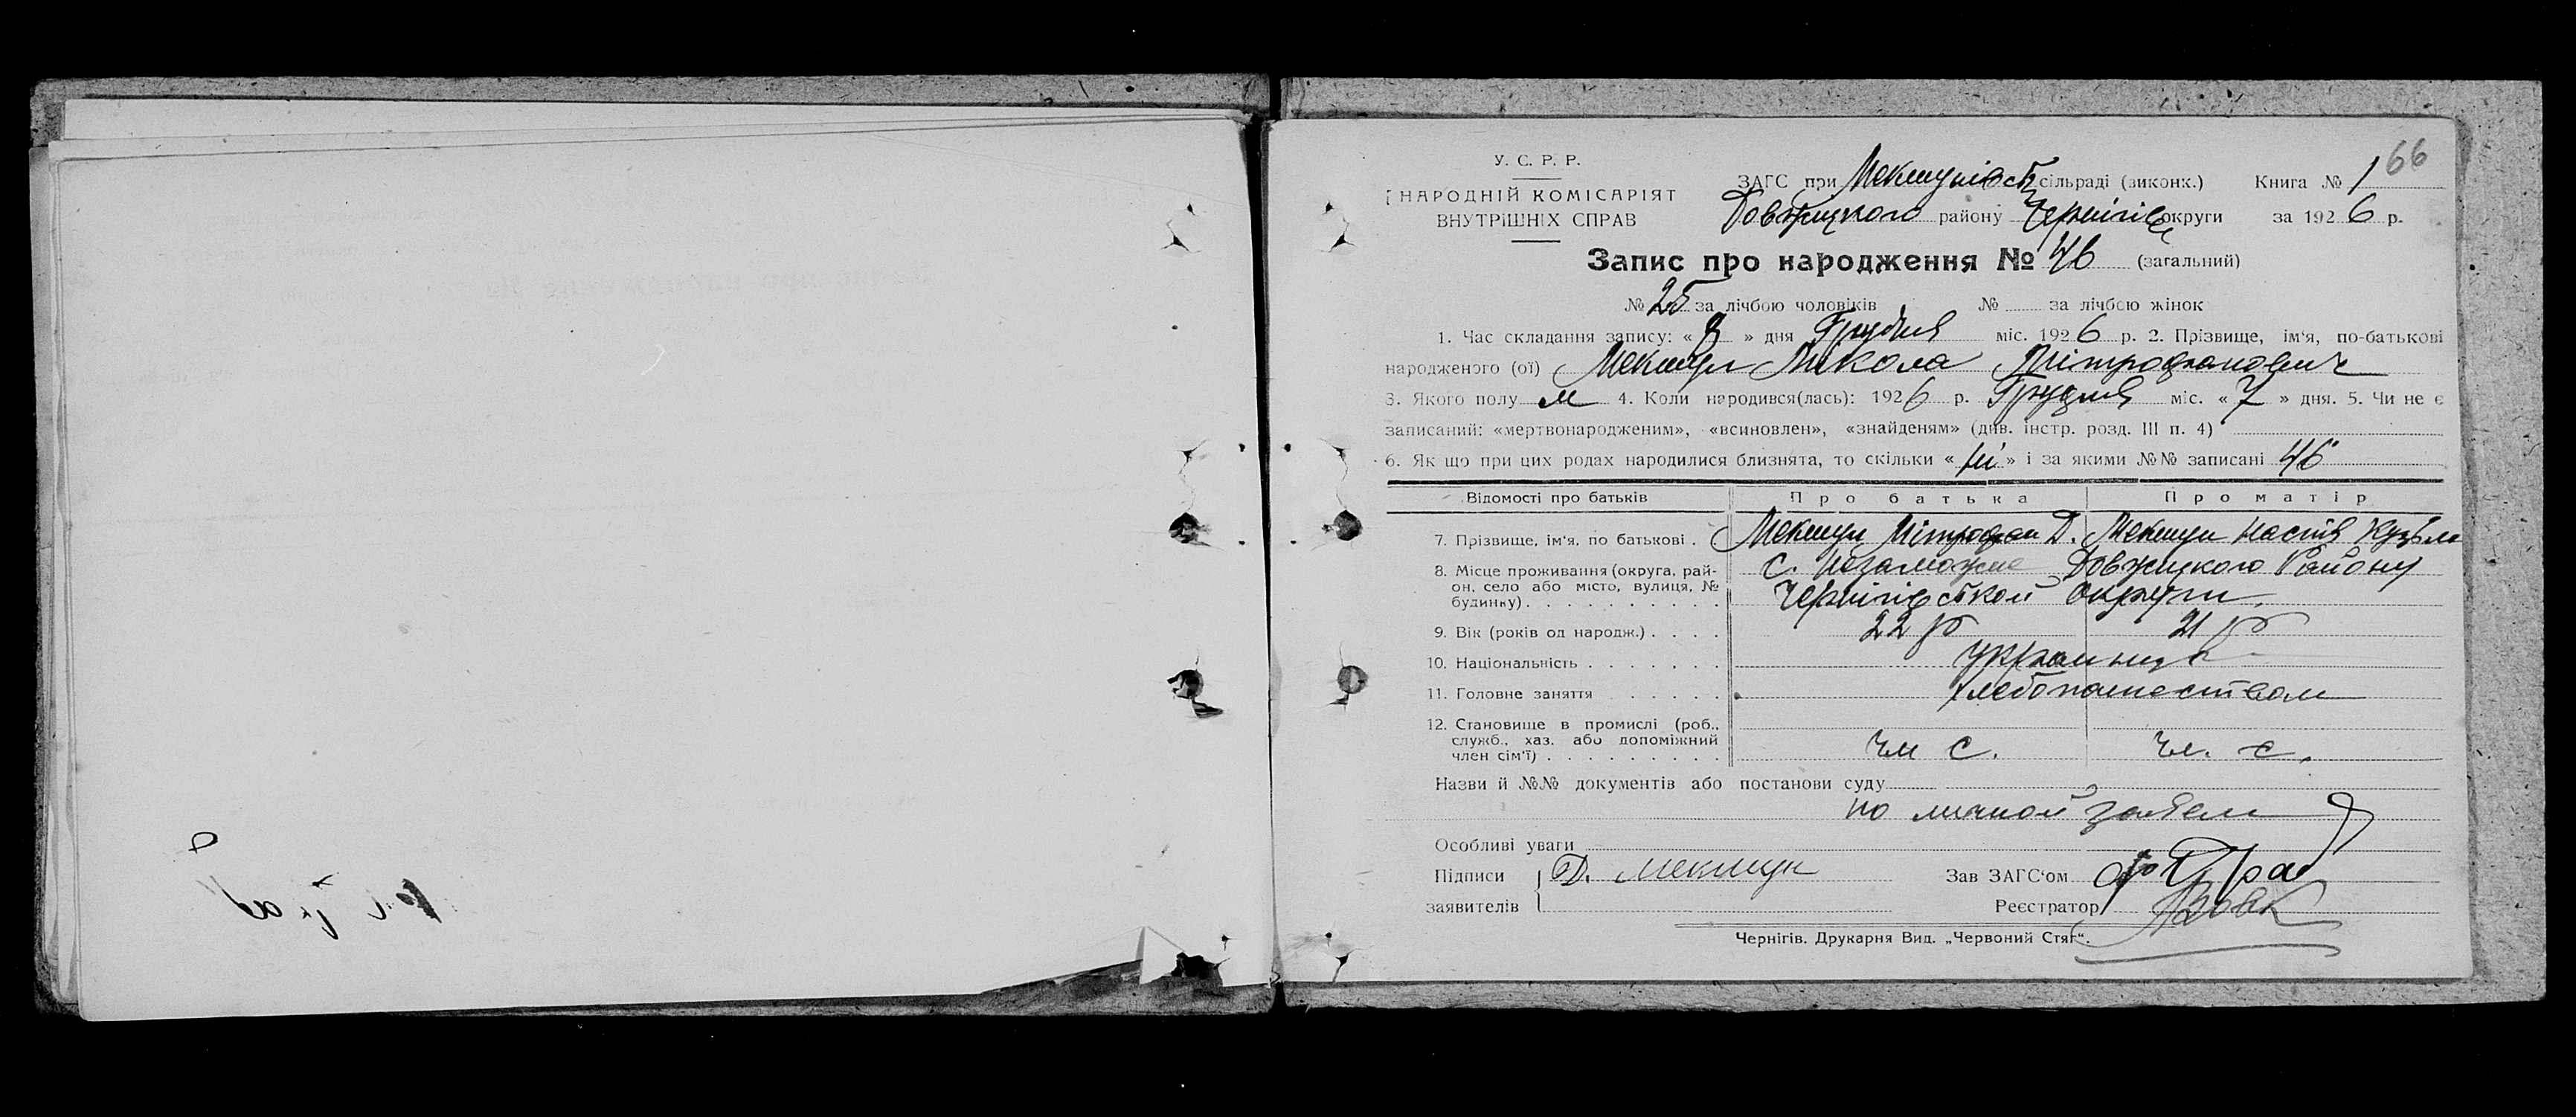 66
У. С. Р. Р.
НАРОДНІЙ КОМІСАРІЯТ
ВНУТРІШНІХ СПРАВ
ЗАГС при сільраді (виконк.) Книга № 1
Довжицкого району Чернігівс округи за 1926 р.
Запис про народження № 46 (загальний)
№ 25 за лічбою чоловіків № за лічбою жінок
1. Час складання запису: « 8 » дня Грудня міс. 1926 р. 2. Прізвище, ім'я, по-батькові
народженого (ої) Мекшун Микола Мітрофанович
3. Якого полу м 4. Коли народився(лась): 1926 р. Грудня міс. « 7 » дня. 5. Чи не є
записаний: «мертвонародженим», «всиновлен», «знайденям» (див. інстр. розд. III п. 4)
6. Як що при цих родах народилися близнята, то скільки « ні » і за якими №№ записані 46
Відомості про батьків Про батька Про матір
7. Прізвище, ім'я, по батькові . . Мекшун Мітрофан Д. Мекшун Настя Кузьм
8. Місце проживання (округа, рай-
он, село або місто, вулиця, №
будинку) . . . . . . . . . .
с. Незаможне Довжицкого Району
Чернігівської округи.
9. Вік (років од народж.) . . . . 22 р 21 р
10. Національність . . . . . . . украинци
11. Головне заняття . . . . . . хлебопашеством
12. Становище в промислі (роб.,
служб., хаз. або допоміжний
член сім'ї) . . . . . . . . . чл с. чл. с.
Назви й №№ документів або постанови суду
по личной заявл
Особливі уваги
Підписи Д. Мекшун Зав ЗАГС'ом
заявителів Реєстратор
Чернігів. Друкарня Вид. „Червоний Стяг“.